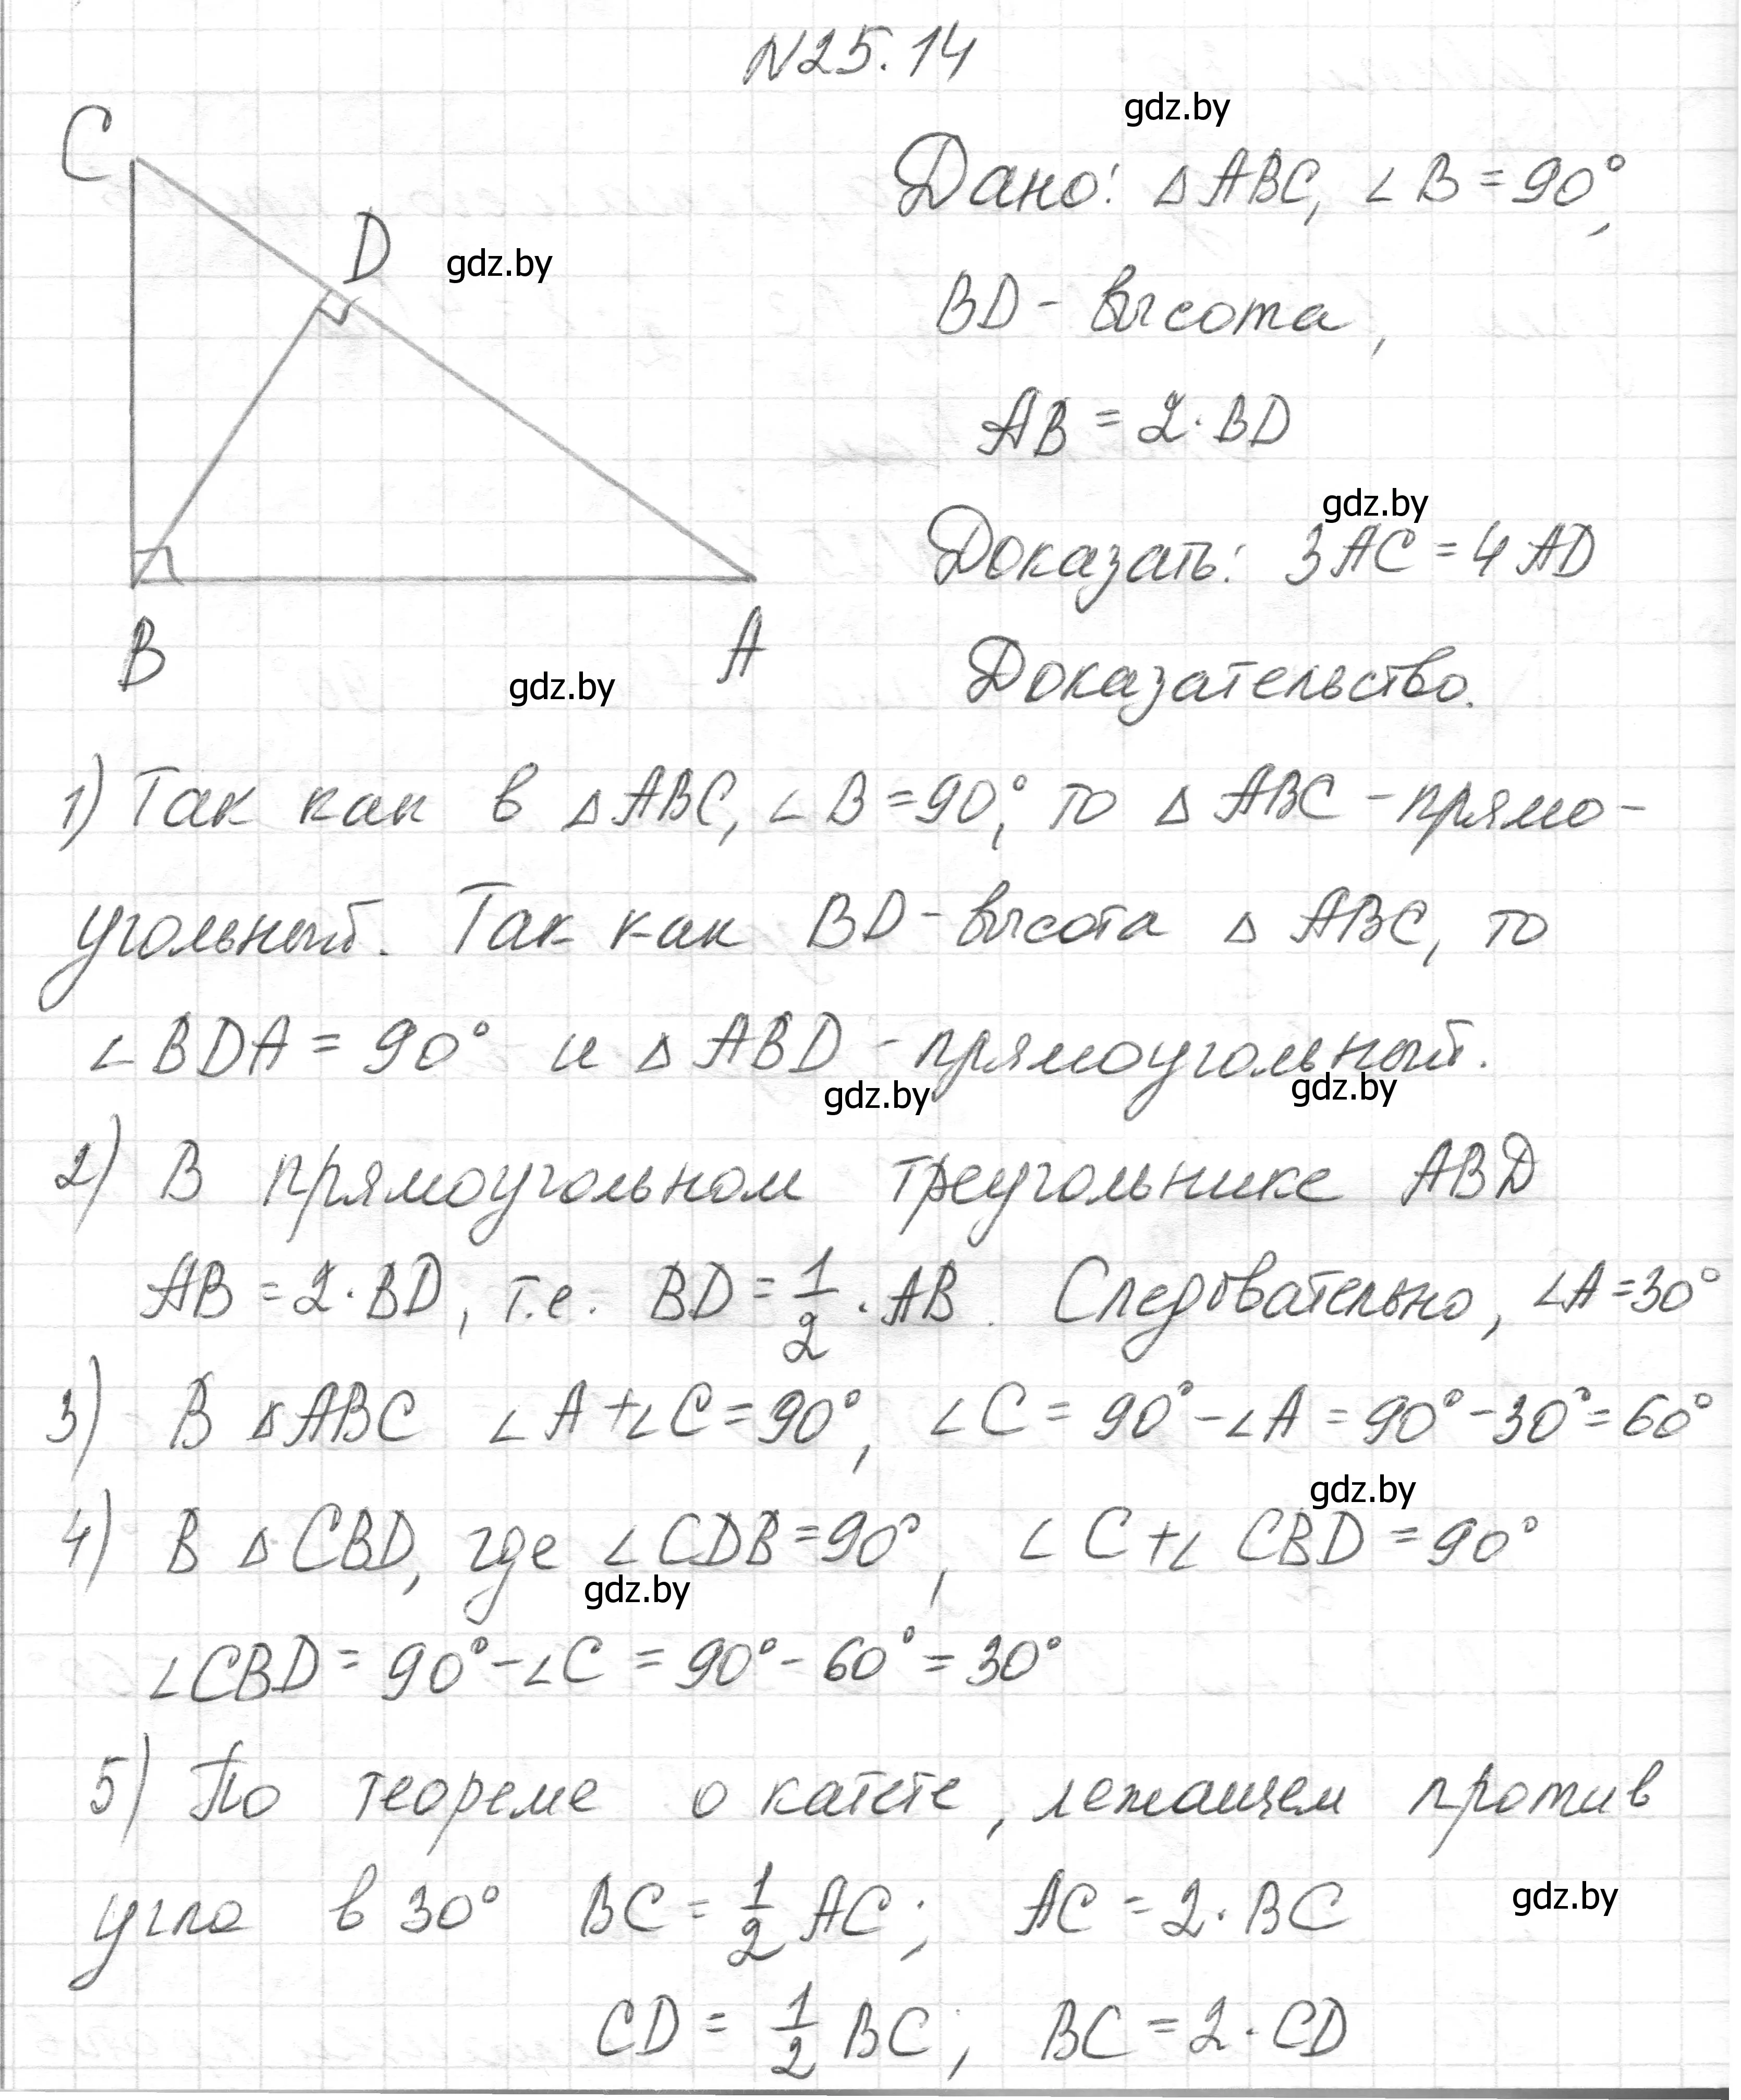 N25.14
gdz.by
C
Дано: △ABC, ∠B=90°,
D
gdz.by
BD - высота,
AB = 2·BD
gdz.by
Доказать: 3AC = 4AD
B
A
gdz.by
Доказательство.
1) Так как в △ABC, ∠B=90°, то △ABC - прямо-
угольный. Так как BD - высота △ABC, то
∠BDA = 90° и △ABD - прямоугольный.
gdz.by
gdz.by
2) В прямоугольном треугольнике ABD
AB = 2·BD, т.е. BD = 1/2 · AB. Следовательно, ∠A=30°
3) В △ABC ∠A+∠C=90°, ∠C = 90°-∠A = 90°-30°=60°
gdz.by
4) В △CBD, где ∠CDB=90°, ∠C+∠CBD=90°
gdz.by
∠CBD = 90°-∠C = 90°-60°=30°
5) По теореме о катете, лежащем против
угла в 30° BC = 1/2 AC; AC = 2·BC
gdz.by
CD = 1/2 BC; BC = 2·CD